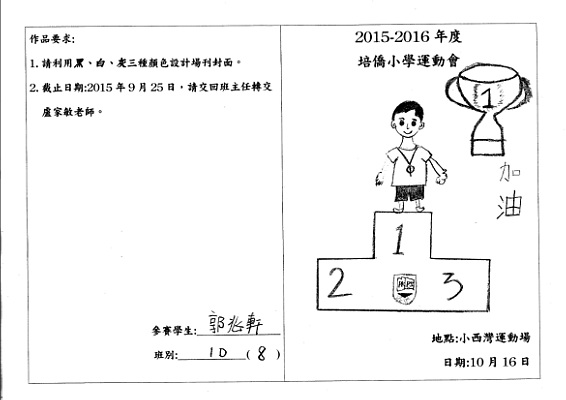 作品要求:
1. 請利用黑、白、灰三種顏色設計場刊封面。
2. 截止日期:2015 年 9 月 25 日，請交回班主任轉交
盧家敏老師。
參賽學生: 郭兆軒
班別: 1D ( 8 )
2015-2016 年度
培僑小學運動會
1
加
油
1
2
3
地點:小西灣運動場
日期:10 月 16 日